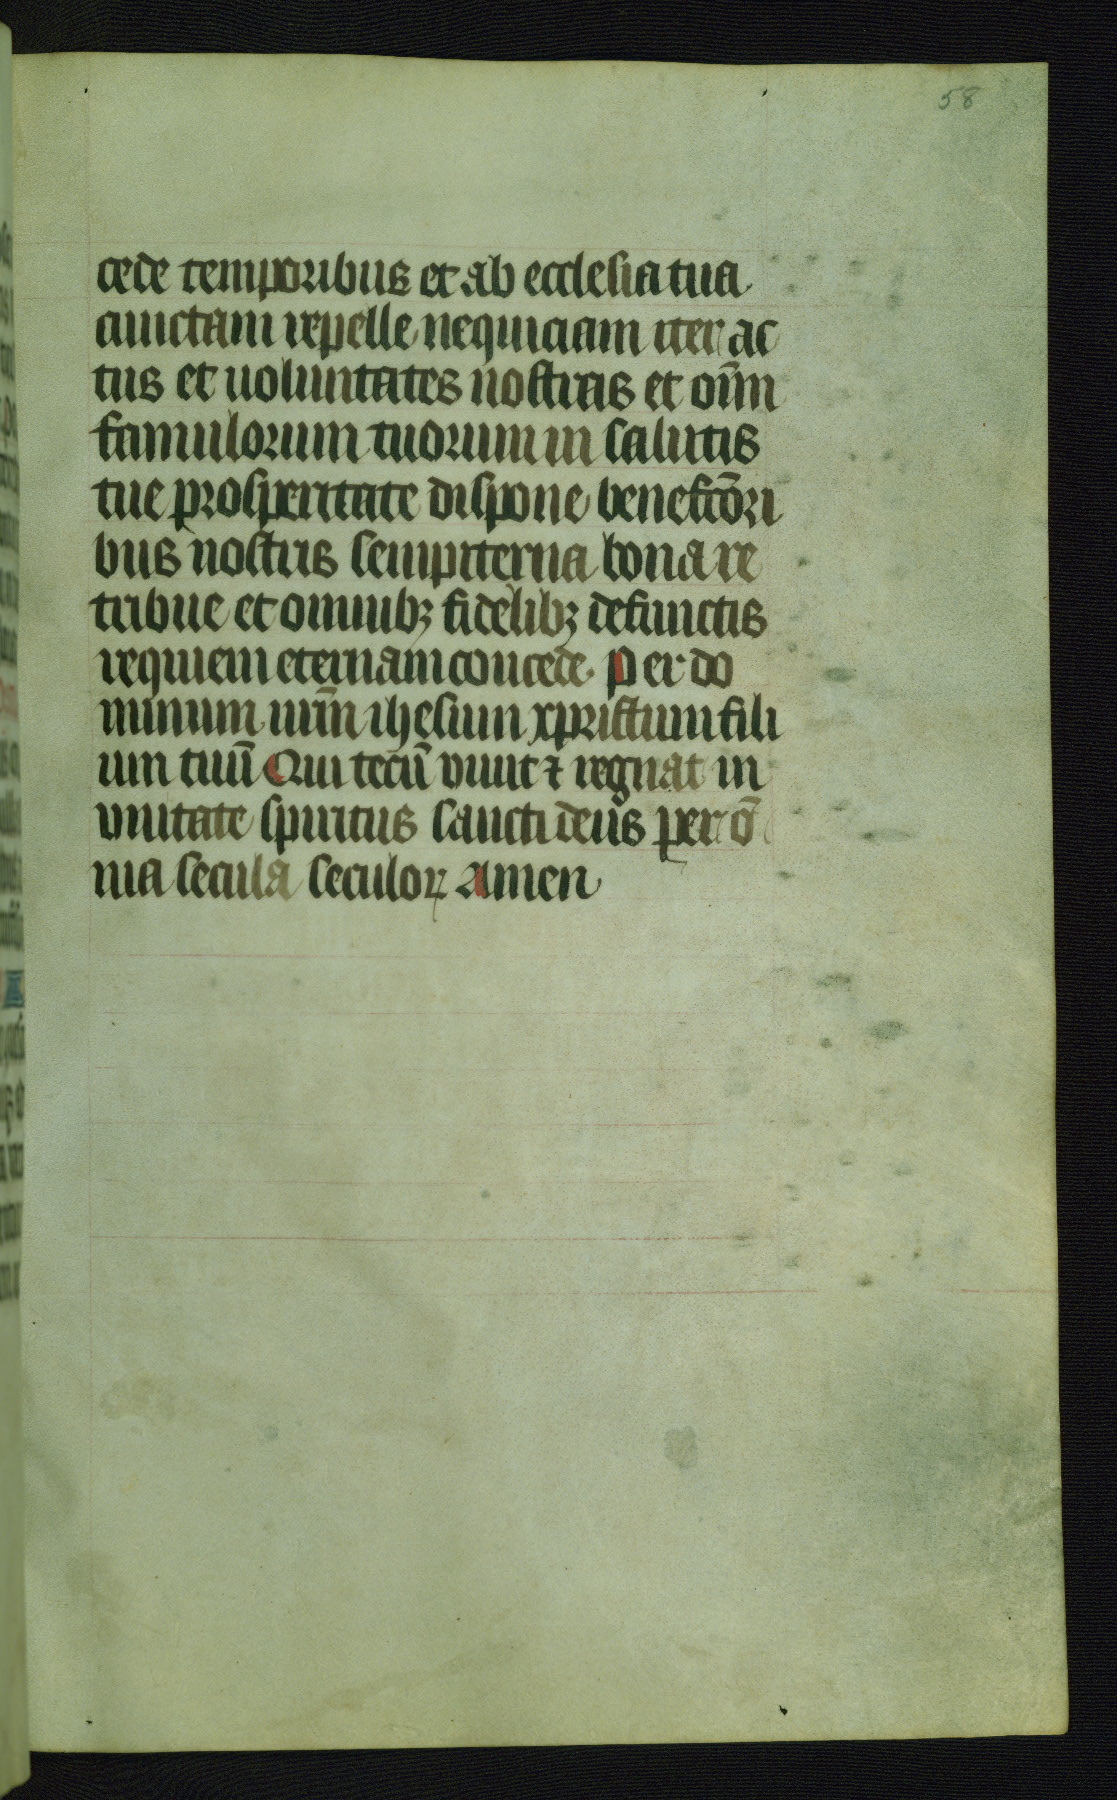 58
cede temporibus et ab ecclesia tua
cunctam repelle nequiciam iter ac
tus et uoluntates nostras et oīm
famulorum tuorum in salutis
tue prosperitate dispone benefcōri
bus nostris sempiterna bona re
tribue et omnibꝫ fidelibꝫ defunctis
requiem eternam concede. Per do
minum nr̄m ihesum xpristum fili
um tuū Qui tecū viuit ⁊ regnat in
vnitate spiritus sancti deus per ō
nia secula seculoꝝ Amen